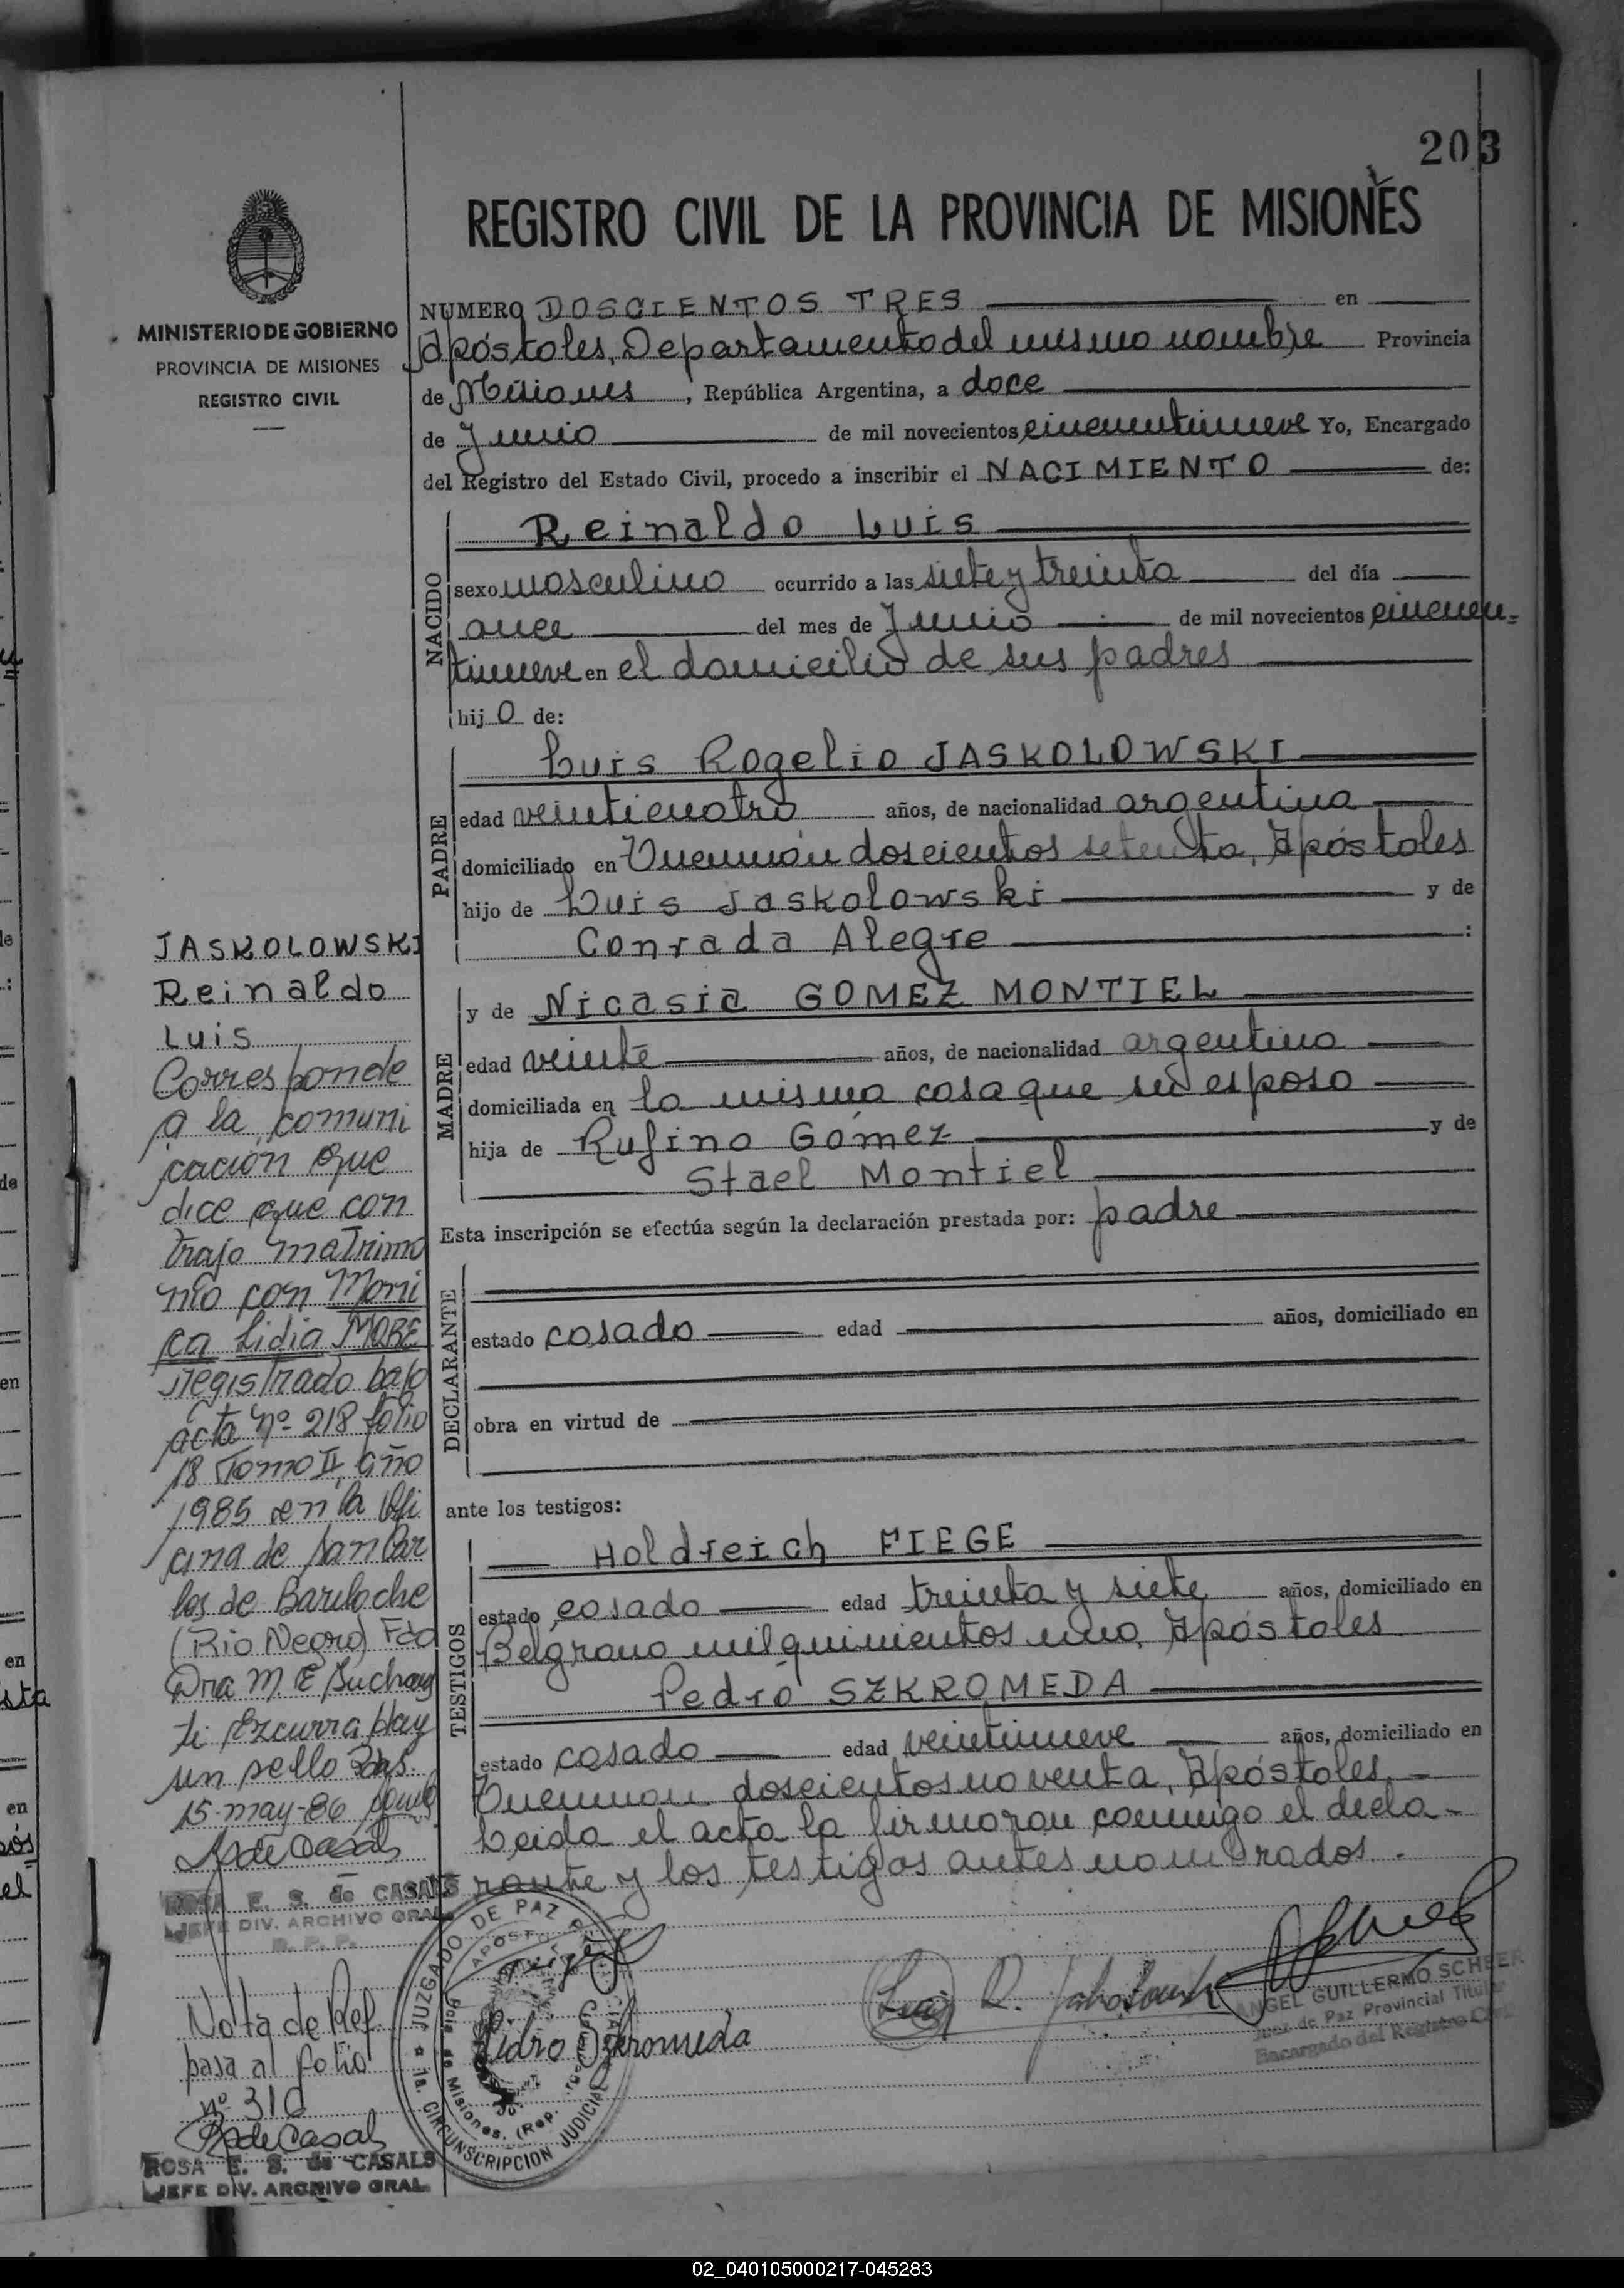 203
REGISTRO CIVIL DE LA PROVINCIA DE MISIONES
MINISTERIO DE GOBIERNO
PROVINCIA DE MISIONES
REGISTRO CIVIL
NUMERO DOSCIENTOS TRES en
Apóstoles, Departamento del mismo nombre Provincia
de Misiones, República Argentina, a doce
de Junio de mil novecientos cincuentinueve Yo, Encargado
del Registro del Estado Civil, procedo a inscribir el NACIMIENTO de:
NACIDO
Reinaldo Luis
sexo masculino ocurrido a las siete y treinta del día
once del mes de Junio de mil novecientos cincuen-
tinueve en el domicilio de sus padres
hijo de:
PADRE
Luis Rogelio JASKOLOWSKI
edad veinticuatro años, de nacionalidad argentina
domiciliado en doscientos setenta, Apóstoles
hijo de Luis Jaskolowski y de
Conrada Alegre :
MADRE
y de Nicasia GOMEZ MONTIEL
edad veinte años, de nacionalidad argentina
domiciliada en la misma casa que su esposo
hija de Rufino Gómez y de
Stael Montiel
Esta inscripción se efectúa según la declaración prestada por: padre
DECLARANTE
estado casado edad años, domiciliado en
obra en virtud de
ante los testigos:
TESTIGOS
Holdreich FIEGE
estado casado edad treinta y siete años, domiciliado en
Belgrano mil quinientos uno, Apóstoles
Pedro SZKROMEDA
estado casado edad veintinueve años, domiciliado en
doscientos noventa, Apóstoles.
Leida el acta la firmaron conmigo el decla-
rante y los testigos antes nombrados.
JASKOLOWSKI
Reinaldo
Luis
Corresponde
a la comuni
cación que
dice que con
trajo matrimo
nio con Moni
ca Lidia MORE
registrado bajo
acta nº 218 folio
18 Tomo II, año
1985 en la Ofi
cina de San Car
los de Bariloche
(Rio Negro) Fdo
Dra M E
ti Ezcurra Hay
un sello
15-may-86
R de Casals
ROSA E. S. de CASALS
JEFE DIV. ARCHIVO GRAL.
R. P. P.
Nota de Ref.
pasa al folio
nº 310
R de Casals
ROSA E. S. de CASALS
JEFE DIV. ARCHIVO GRAL.
JUZGADO DE PAZ
APOSTO
1a. CIRCUNSCRIPCION JUDICIAL
Pcia. de Misiones. (Rep.
Pedro Szkromeda
Luis R. Jaskolowski
ANGEL GUILLERMO SCHEER
Juez de Paz Provincial Titular
Encargado del Registro Civil
02_040105000217-045283